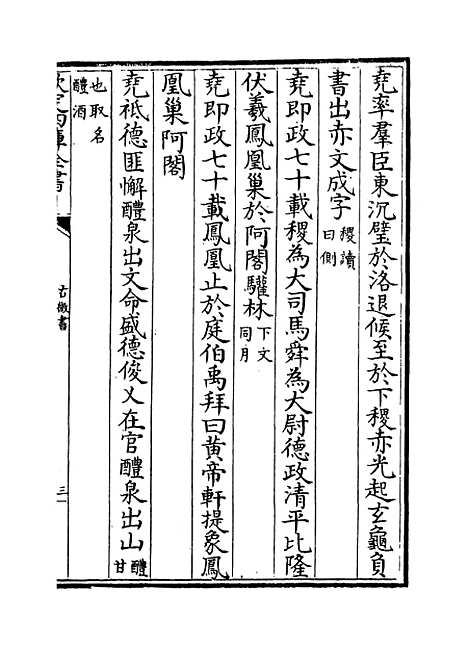 堯率羣臣東沉璧於洛退候至於下稷赤光起玄龜負
書出赤文成字稷讀曰側
堯即政七十載稷為大司馬舜為大尉德政清平比隆
伏羲鳳凰巢於阿閣驩林下文同月
堯即政七十載鳳凰止於庭伯禹拜曰黄帝軒提象鳳
凰巢阿閣
堯祗德匪懈醴泉出文命盛德俊乂在官醴泉出山醴甘
也取名醴酒
欽定四庫全書
古微書
三